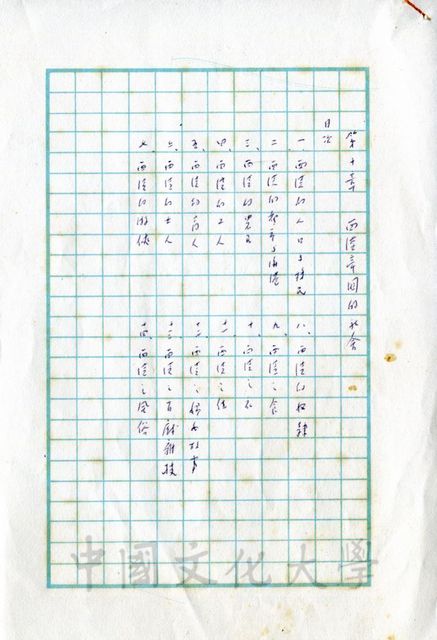 第十章 西漢帝國的社會
目次
一、西漢的人口與移民
二、西漢的都市與海港
三、西漢的農民
四、西漢的工人
五、西漢的商人
六、西漢的士人
七、西漢的游俠
八、西漢的奴隸
九、西漢之食
十、西漢之衣
十一、西漢之住
十二、西漢之婦女
十三、西漢之百戲雜技
十四、西漢之風俗
中國文化大學